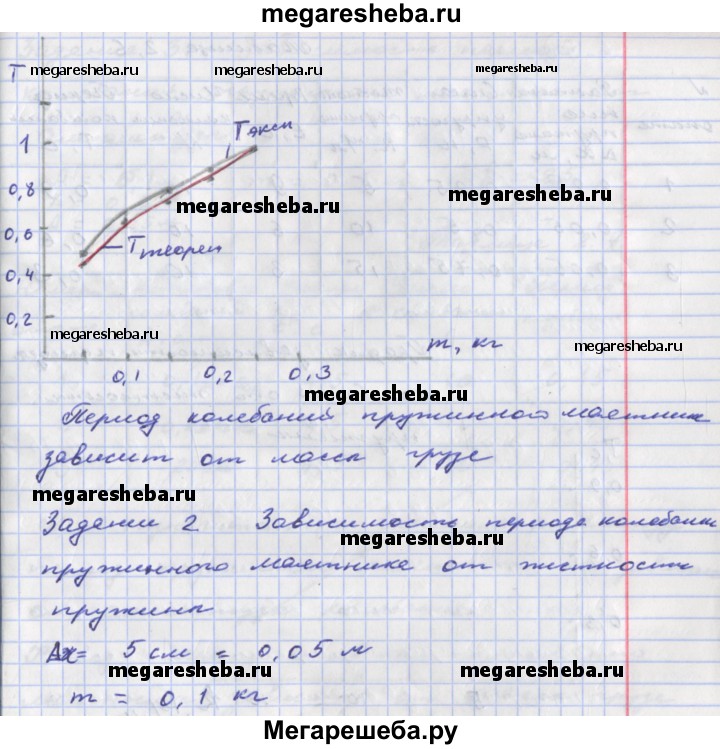 megaresheba.ru
T
megaresheba.ru megaresheba.ru megaresheba.ru
1
T эксп
0,8
megaresheba.ru
megaresheba.ru
0,6
T теорет
0,4
0,2
megaresheba.ru
m, кг
megaresheba.ru
0,1 0,2 0,3
megaresheba.ru
Период колебаний пружинного маятник
зависит от массы груз
megaresheba.ru
Задание 2 Зависимость периода колебани
megaresheba.ru
пружинного маятника от жесткости
пружины
Δx = 5 см = 0,05 м
megaresheba.ru megaresheba.ru
m = 0,1 кг
Мегарешеба.ру